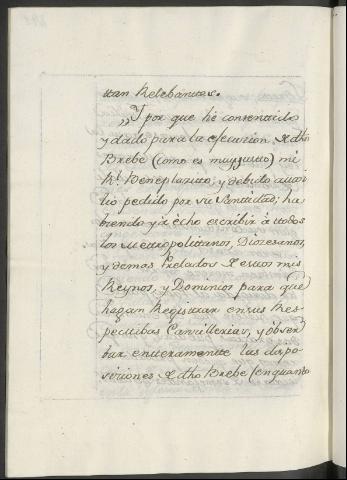 tan Relebántes.
„Y por que hé consentido
y dado para la ejecucion, de dho
Brebe (como es muy justo) mi
Rl. Beneplazito, y debido auxi
lio pedido por su Santidad; ha
biendo yá echo escribir à todos
los Metropolitanos, Diozesanos,
y demas Prelados de estos mis
Reynos, y Dominios para que
hagan Registrar en sus Res-
pectibas Canzillerias, y obser
bar enteramente las dispo
siziones de dho Brebe (en quanto